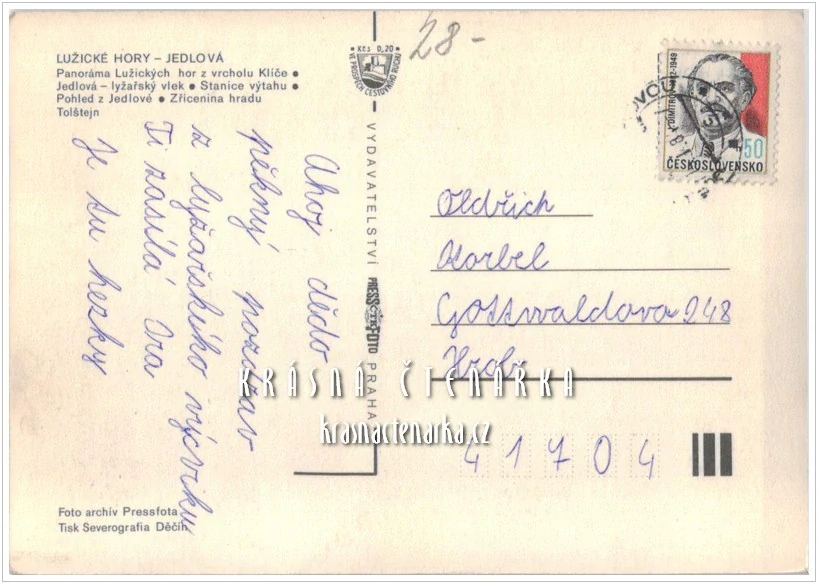 28-
LUŽICKÉ HORY – JEDLOVÁ
Panoráma Lužických hor z vrcholu Klíče ●
Jedlová – lyžařský vlek ● Stanice výtahu ●
Pohled z Jedlové ● Zřícenina hradu
Tolštejn
Kčs 0,20
VE PROSPĚCH CESTOVNÍHO RUCHU
DIMITROV 1882-1949
50
ČESKOSLOVENSKO
Ahoj dědo
pěkný pozdrav
z lyžařského výcviku
Ti zasílá
Je tu hezky
VYDAVATELSTVÍ PRESSFOTO PRAHA
Oldřich
Korbel
Gottwaldova 248
Hrob
41704
KRÁSNÁ ČTENÁŘKA
krasnactenarka.cz
Foto archív Pressfota
Tisk Severografia Děčín